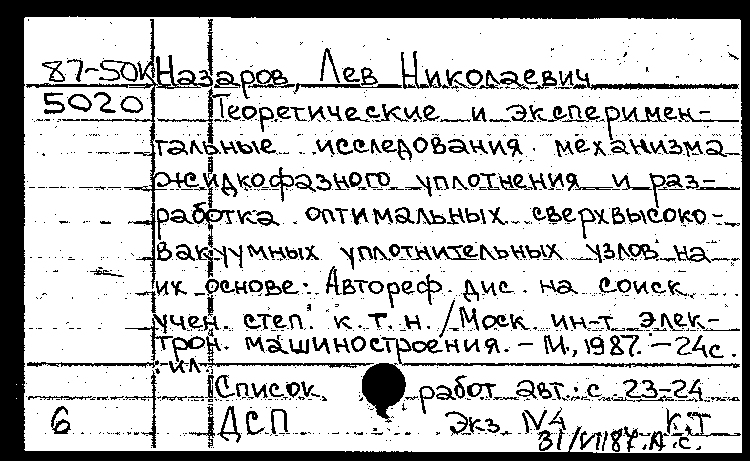 87-50К Назаров, Лев Николаевич
5020 Теоретические и эксперимен-
тальные исследования механизма
жидкофазного уплотнения и раз-
работка оптимальных сверхвысоко-
вакуумных уплотнительных узлов на
их основе: Автореф. дис. на соиск
учен. степ. к. т. н. / Моск. ин-т элек-
трон. машиностроения. - М., 1987. - 24с.
: ил
Список работ авт.: с. 23-24
6 ДСП Экз. №4 К,Т
31/VII87. А.С.